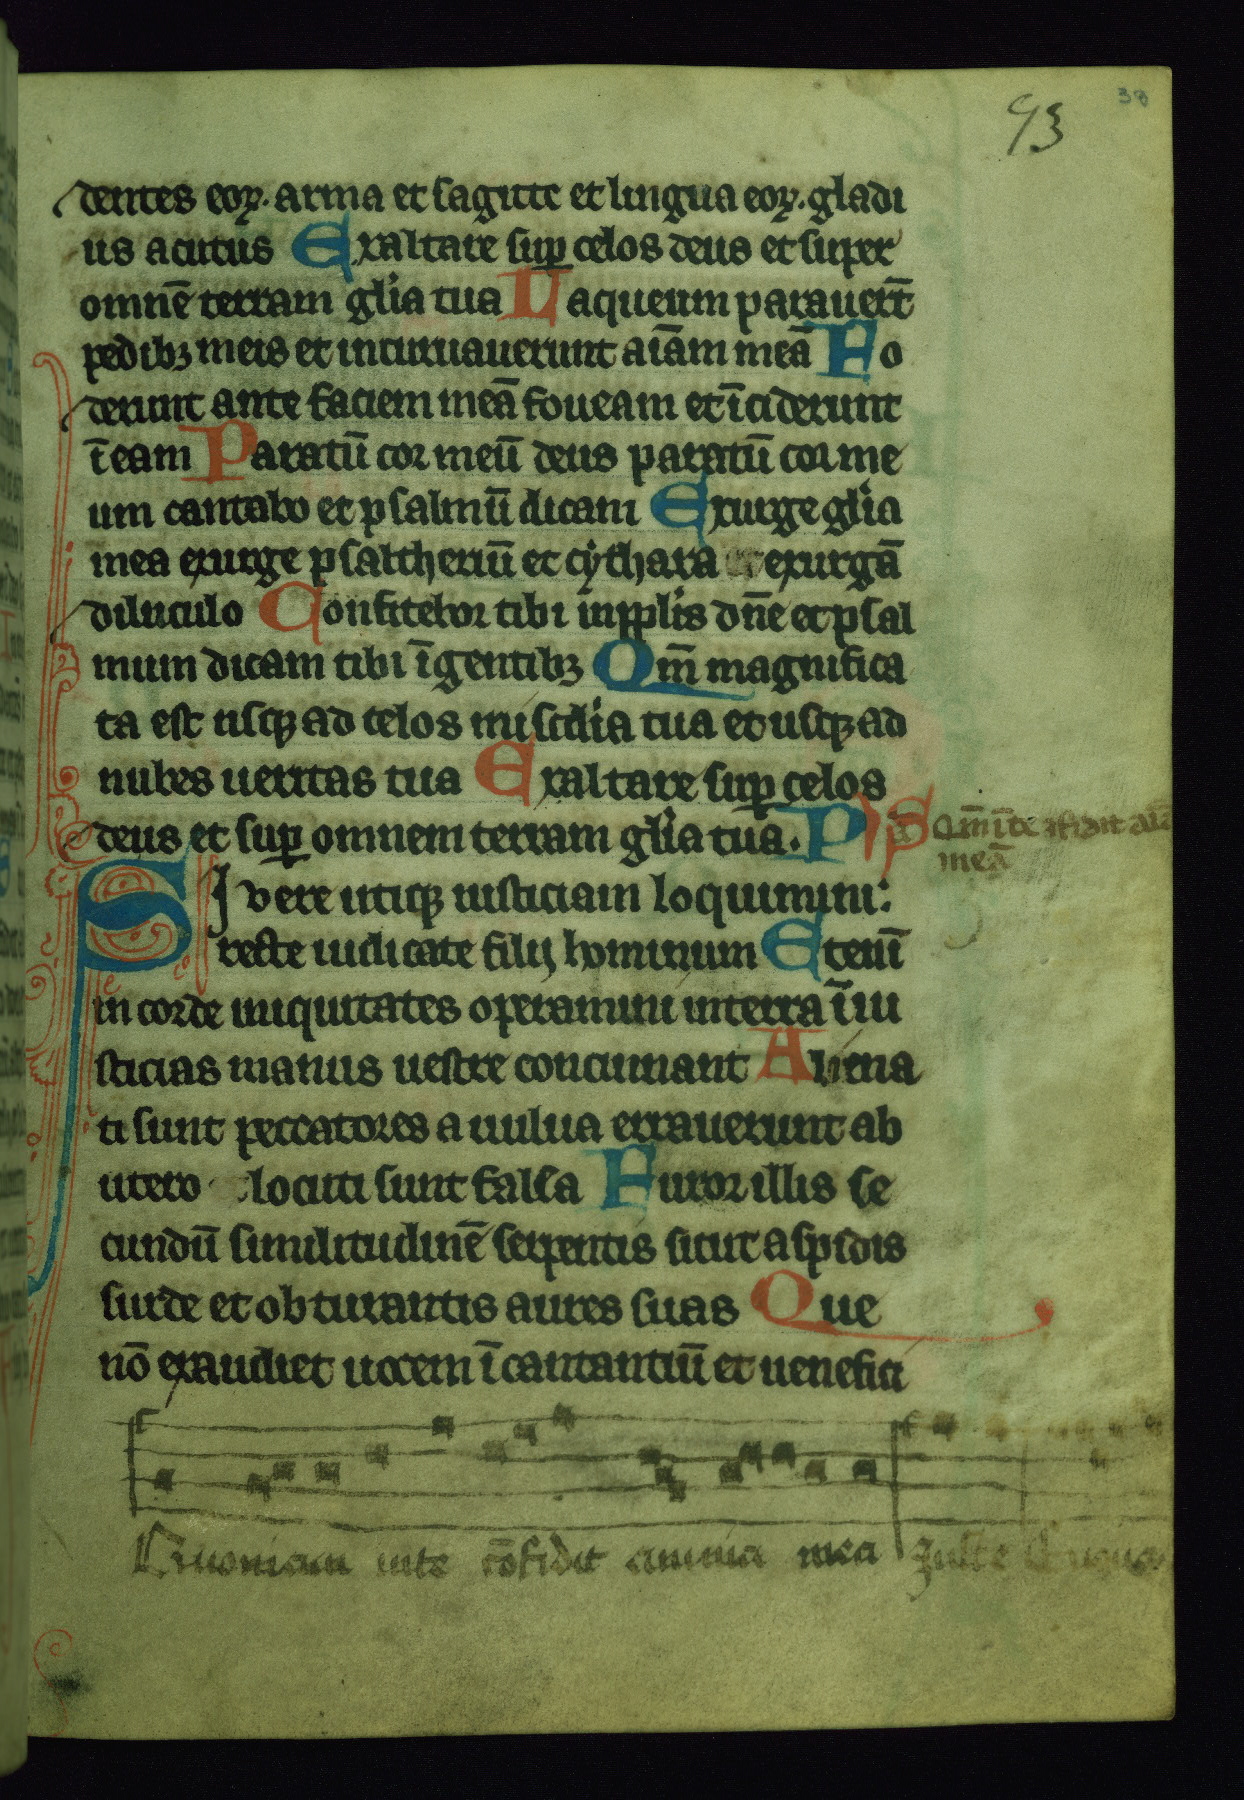 93
38
dentes eoꝝ. arma et sagitte et lingua eoꝝ. gladi
us acutus Exaltare suꝑ celos deus et super
omnē terram glīa tua Laqueum parauer̄t
pedibꝫ meis et incuruauerunt aīam meā Fo
derunt ante faciem meā foueam et īciderunt
ī eam Paratū cor meū deus paratū cor me
um cantabo et psalmū dicam Exurge glīa
mea exurge psaltheriū et cẏthara exurgā
diluculo Confitebor tibi in pplis dn̄e et psal
mum dicam tibi ī gentibꝫ Qm̄ magnifica
ta est usqꝫ ad celos mīscdīa tua et usqꝫ ad
nubes ueritas tua Exaltare suꝑ celos
deus et suꝑ omnem terram glīa tua. P̄s
Qm̄ ī te ꝯfidit aīa
meā
SI vere utiqꝫ iusticiam loquimini:
recte iudicate filij hominum Etenī
in corde iniquitates operamini in terra ī iu
sticias manus uestre concinnant Aliena
ti sunt peccatores a uulua errauerunt ab
utero locuti sunt falsa Furor illis se
cundū similitudinē serpentis sicut aspidis
surde et obturantis aures suas Que
nō exaudiet uocem īcantantiū et uenefici
Quoniam in te cōfidit anima mea Juste